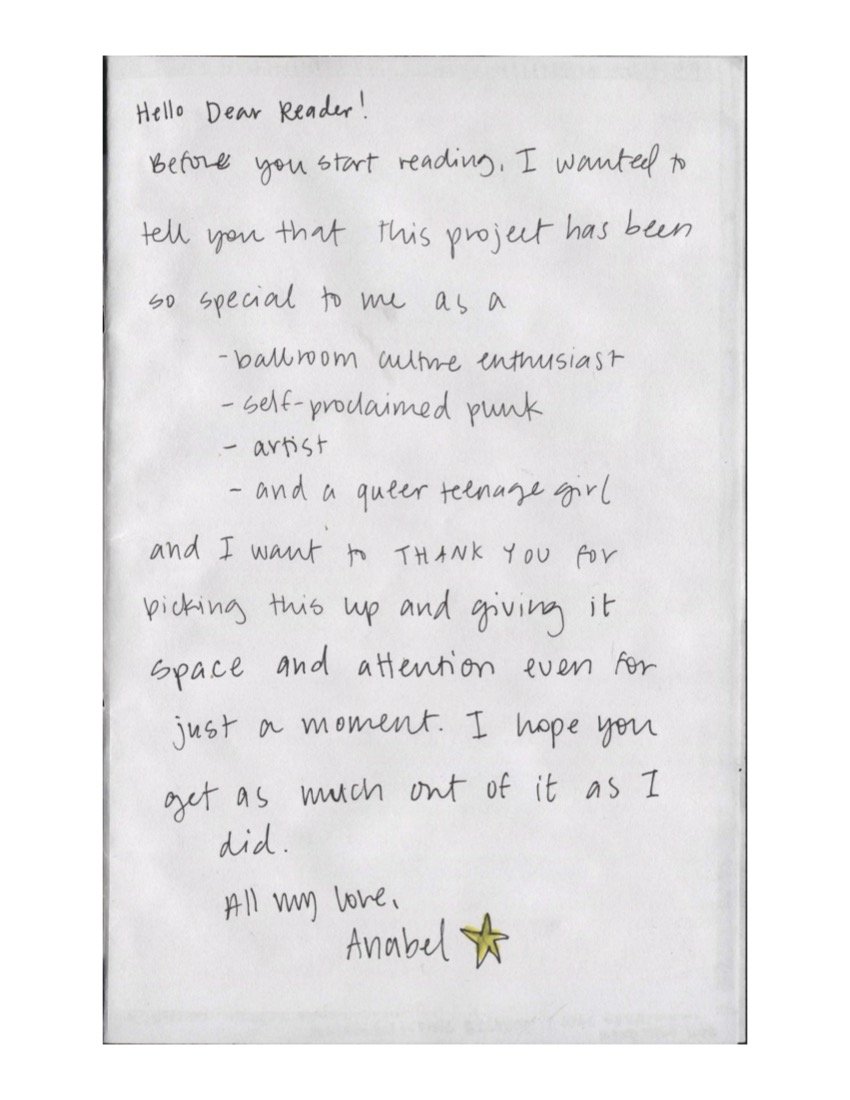 Hello Dear Reader!
Before you start reading, I wanted to
tell you that this project has been
so special to me as a
-ballroom culture enthusiast
- self-proclaimed punk
- artist
- and a queer teenage girl
and I want to THANK YOU for
picking this up and giving it
space and attention even for
just a moment. I hope you
get as much out of it as I
did.
All my love,
Anabel